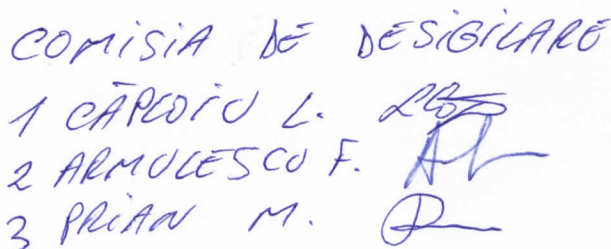 COMISIA DE DESIGILARE
1 CĂPLOIU L.
2 ARMULESCU F.
3 PRIAN M.